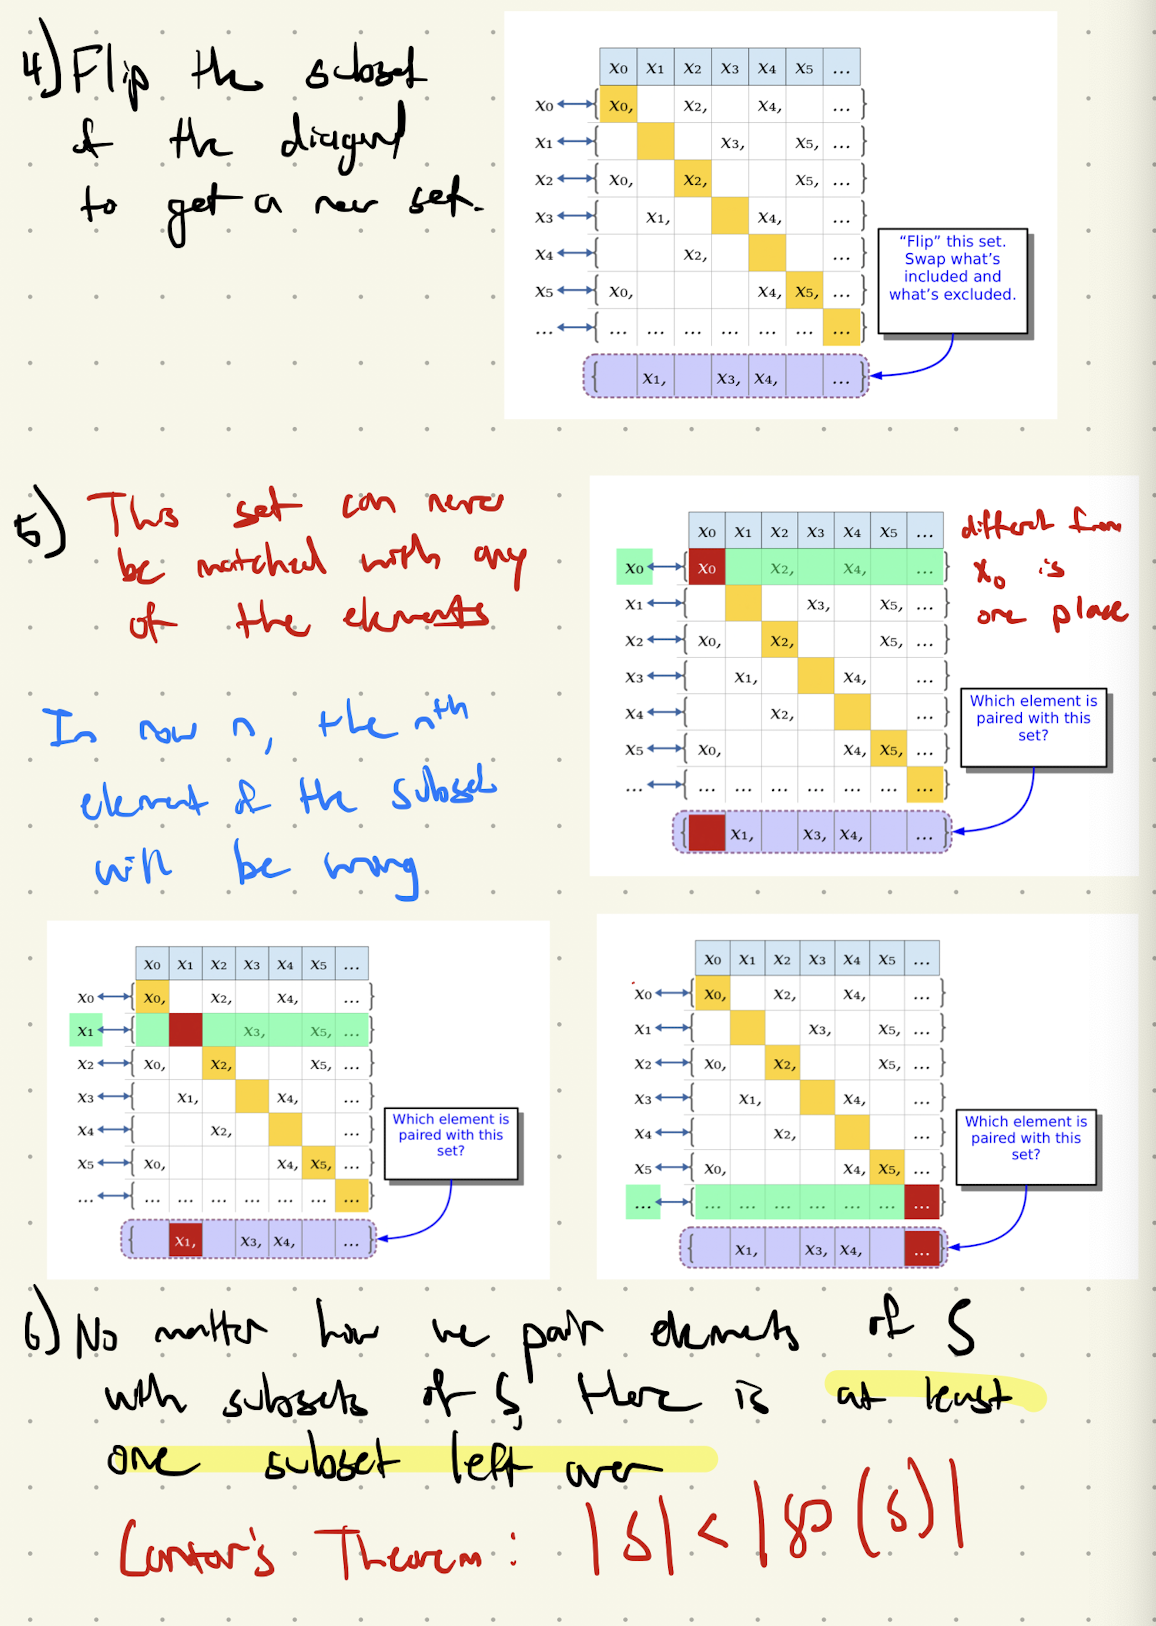 4) Flip the subset
of the diagonal
to get a new set.
x₀ x₁ x₂ x₃ x₄ x₅ ...
x₀ { x₀, x₂, x₄, ... }
x₁ { x₃, x₅, ... }
x₂ { x₀, x₂, x₅, ... }
x₃ { x₁, x₄, ... }
x₄ { x₂, ... }
x₅ { x₀, x₄, x₅, ... }
... { ... ... ... ... ... ... ... }
{ x₁, x₃, x₄, ... }
“Flip” this set.
Swap what’s
included and
what’s excluded.
5) This set can never
be matched with any
of the elements
In row n, the nth
element of the subset
will be wrong
x₀ x₁ x₂ x₃ x₄ x₅ ...
x₀ { x₀ x₂, x₄, ... }
x₁ { x₃, x₅, ... }
x₂ { x₀, x₂, x₅, ... }
x₃ { x₁, x₄, ... }
x₄ { x₂, ... }
x₅ { x₀, x₄, x₅, ... }
... { ... ... ... ... ... ... ... }
{ x₁, x₃, x₄, ... }
different from
x₀ is
one place
Which element is
paired with this
set?
x₀ x₁ x₂ x₃ x₄ x₅ ...
x₀ { x₀, x₂, x₄, ... }
x₁ { x₃, x₅, ... }
x₂ { x₀, x₂, x₅, ... }
x₃ { x₁, x₄, ... }
x₄ { x₂, ... }
x₅ { x₀, x₄, x₅, ... }
... { ... ... ... ... ... ... ... }
{ x₁, x₃, x₄, ... }
Which element is
paired with this
set?
x₀ x₁ x₂ x₃ x₄ x₅ ...
x₀ { x₀, x₂, x₄, ... }
x₁ { x₃, x₅, ... }
x₂ { x₀, x₂, x₅, ... }
x₃ { x₁, x₄, ... }
x₄ { x₂, ... }
x₅ { x₀, x₄, x₅, ... }
... { ... ... ... ... ... ... ... }
{ x₁, x₃, x₄, ... }
Which element is
paired with this
set?
6) No matter how we pair elements of S
with subsets of S, there is at least
one subset left over
Cantor's Theorem: |S| < |℘(S)|